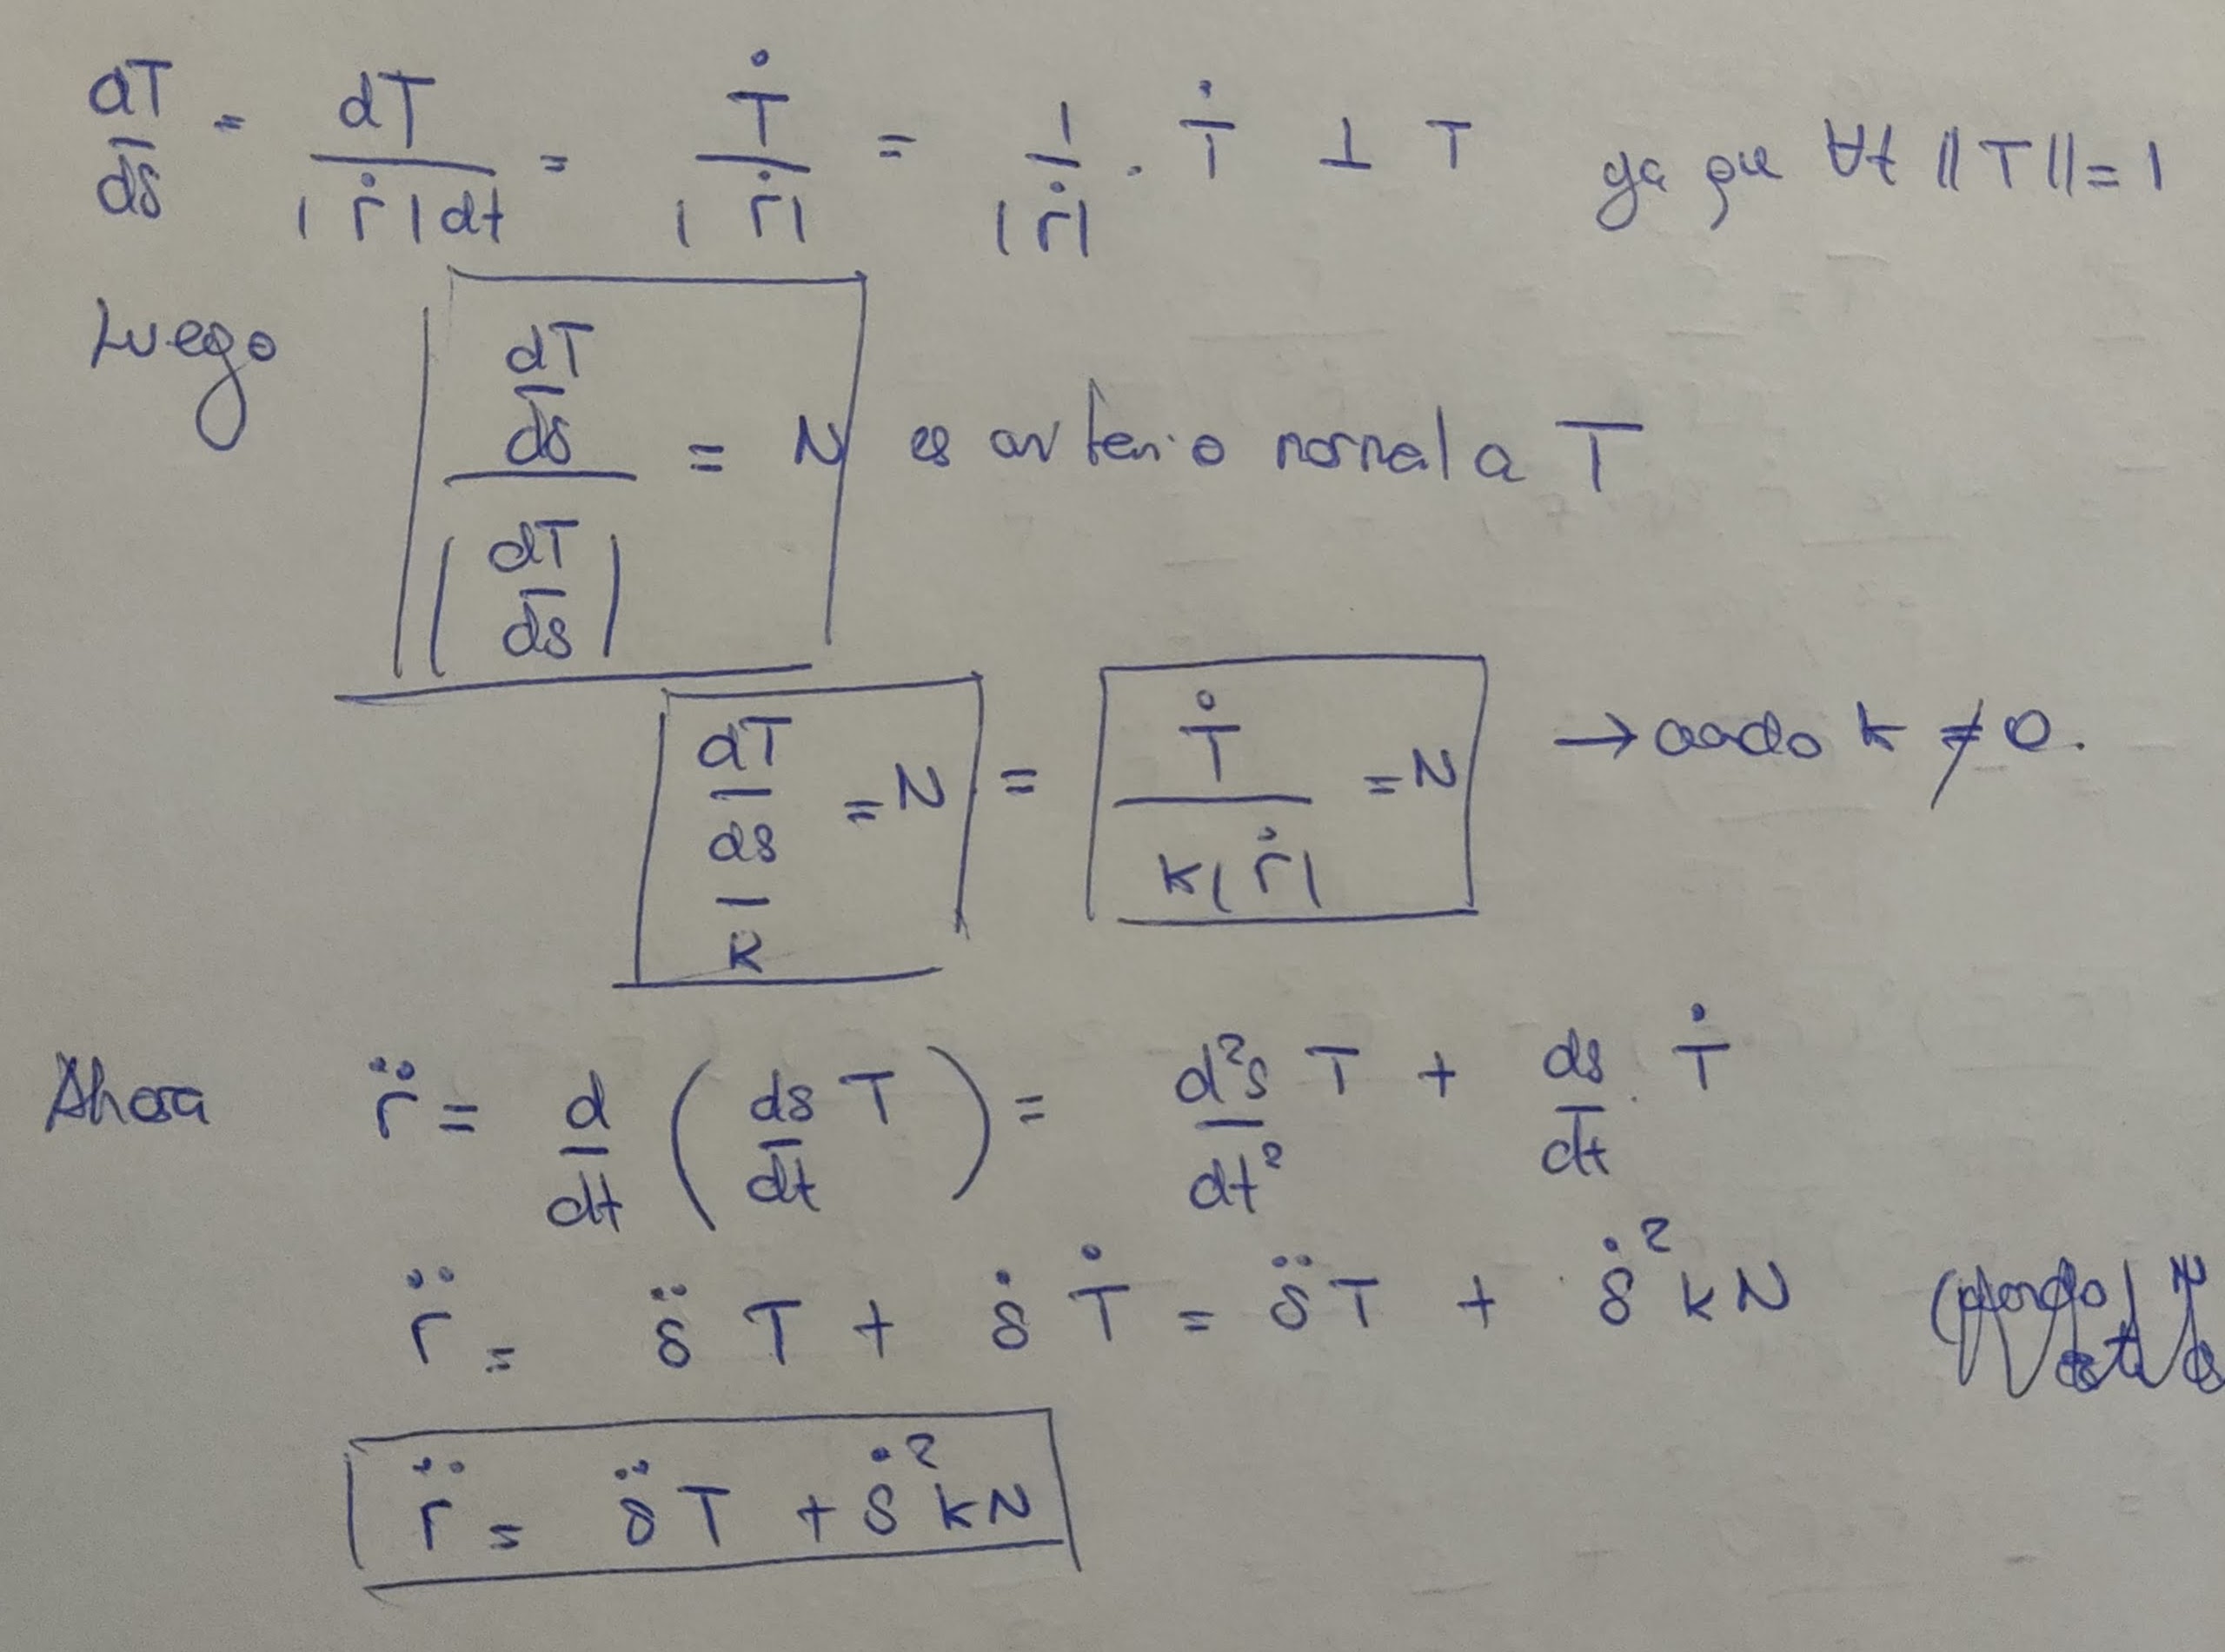 dT/ds = dT/(|ṙ|dt) = Ṫ/|ṙ| = 1/|ṙ| · Ṫ ⊥ T ya que ∀t ||T|| = 1
Luego (dT/ds)/|dT/ds| = N es normal a T
(dT/ds)/k = N = Ṫ/(k|ṙ|) = N → cuando k ≠ 0.
Ahora r̈ = d/dt (ds/dt T) = d²s/dt² T + ds/dt · Ṫ
r̈ = s̈ T + ṡ Ṫ = s̈ T + ṡ² k N
r̈ = s̈ T + ṡ² k N